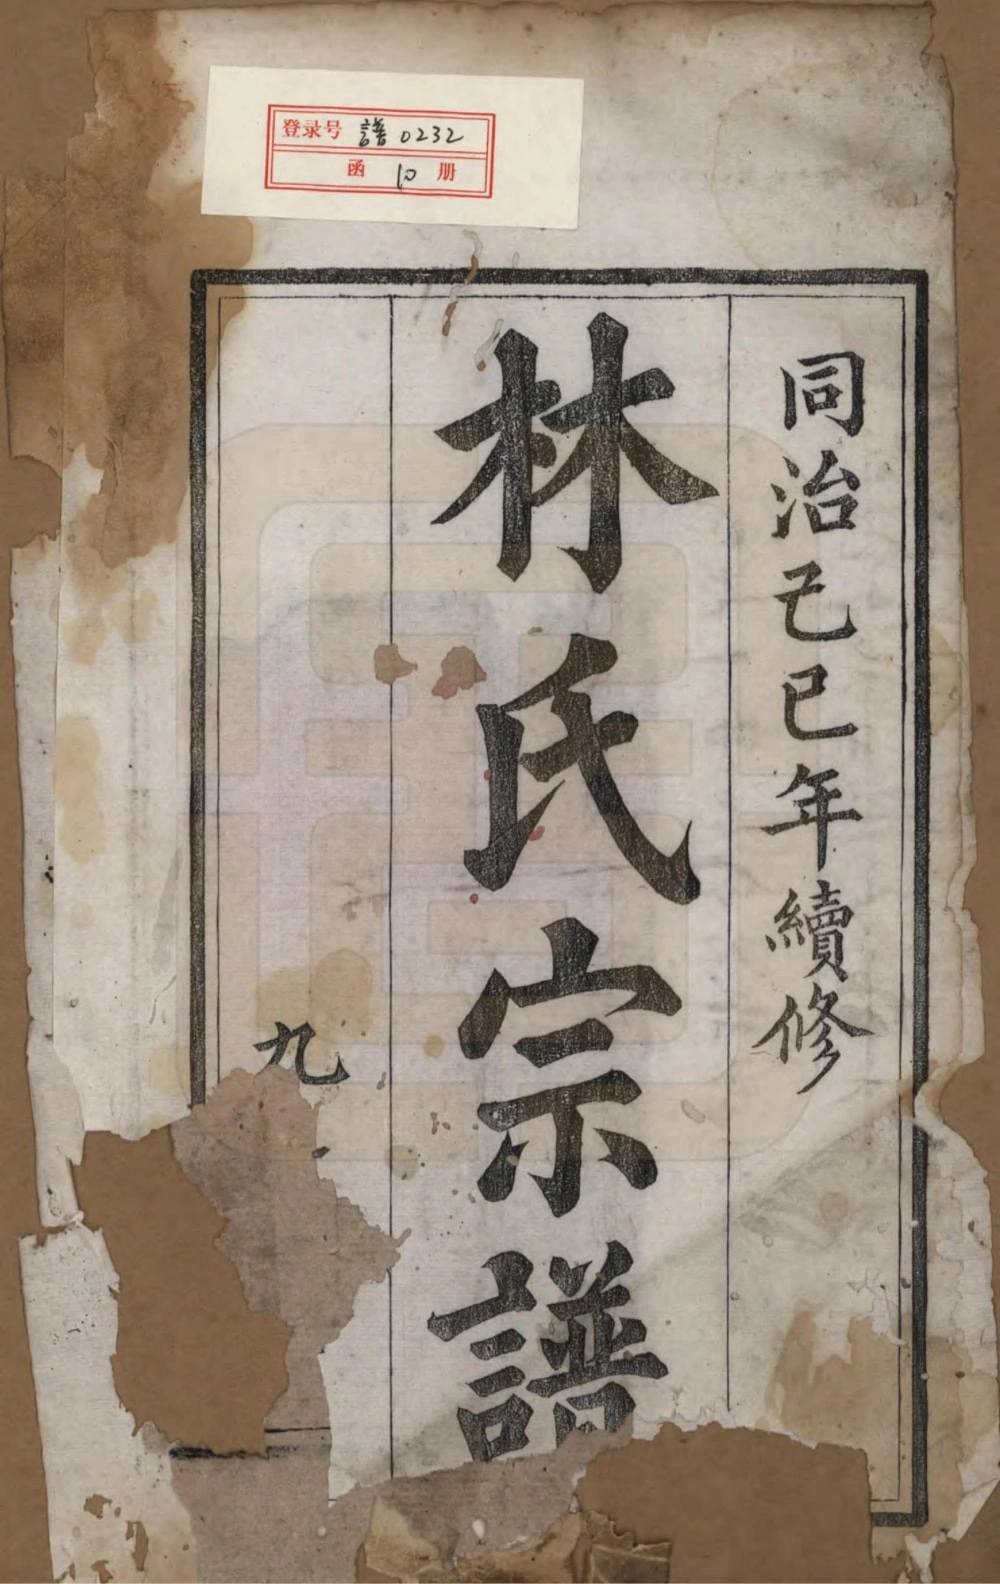 登录号 譜0232
函 10 册
同治己巳年續修
林氏宗譜
九